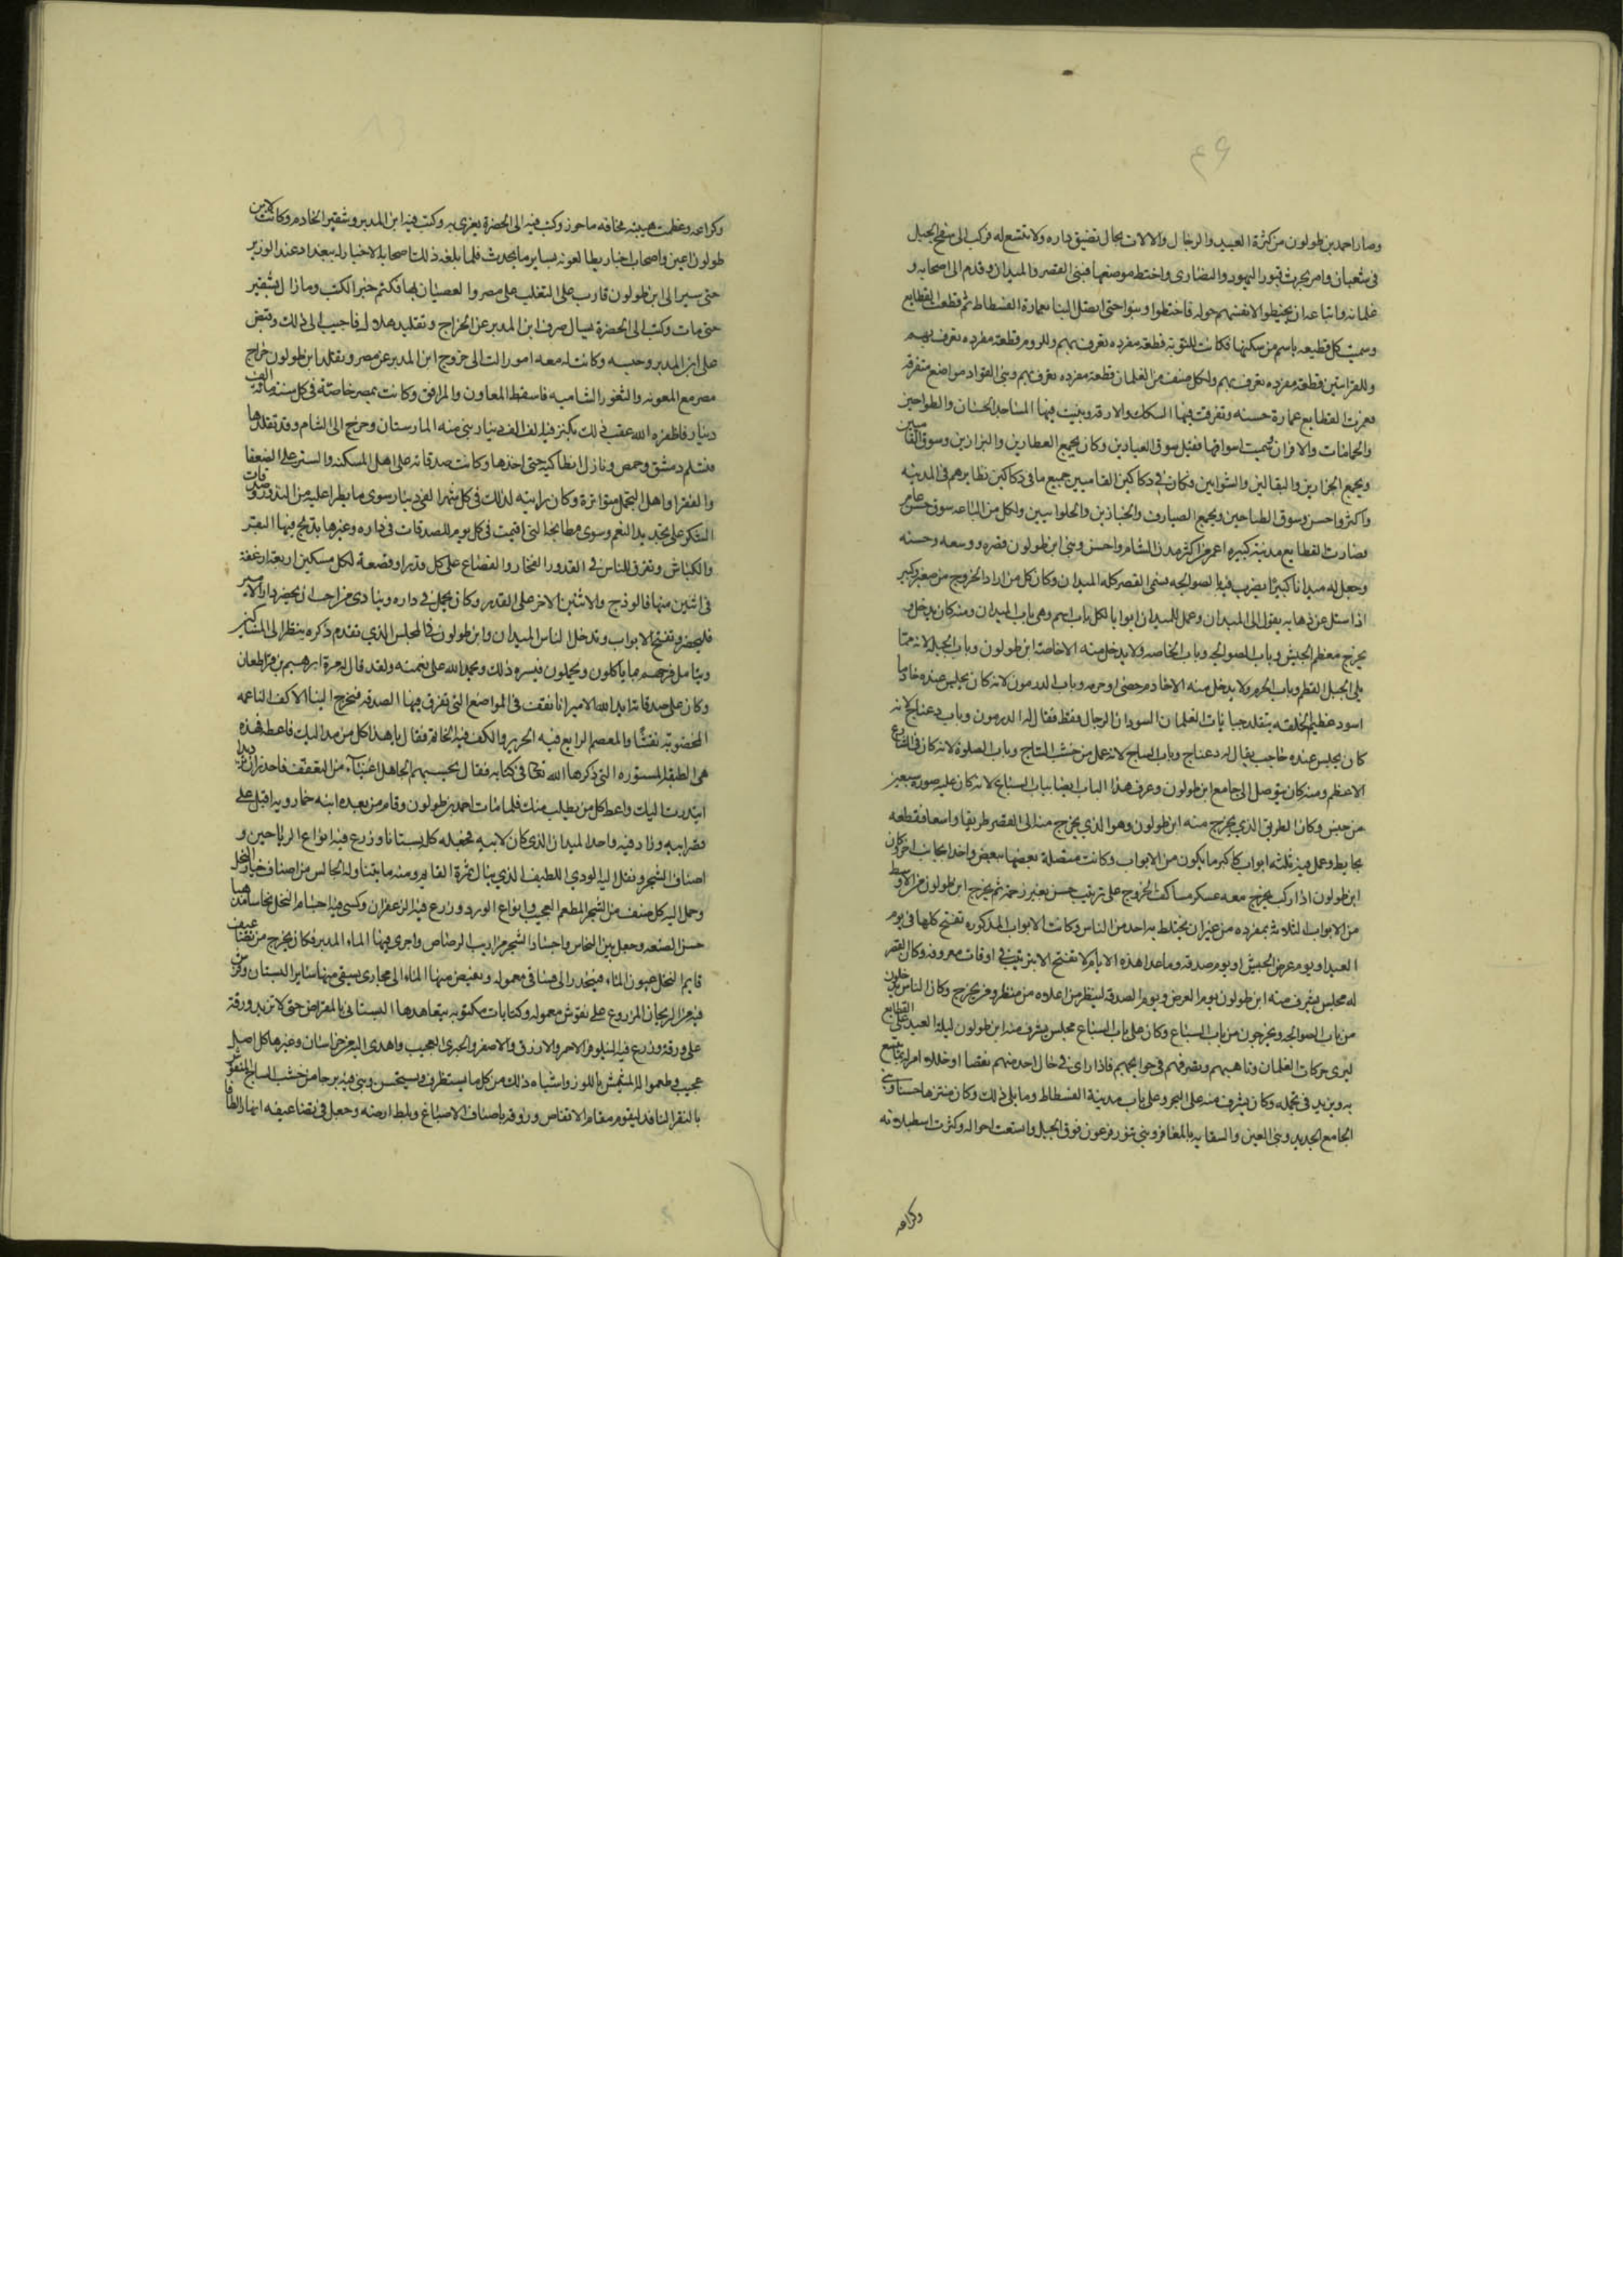 ٤٩
وصار احمد بن طولون من كثرة العبيد والرجال والالات بحال تضيق داره ولا تتسع له فركب الى سفح الجبل
فى شعبان وامر بحرث قبور اليهود والنصارى واختط موضعها فبنى القصر والميدان وتقدم الى اصحابه و
غلمانه واتباعه ان يختطوا لانفسهم حوله فاختطوا وبنوا حتى اتصل البنا بعمارة الفسطاط ثم قطعت القطايع
وسميت كل قطيعه باسم من سكنها فكانت للنوبه قطعة مفرده تعرف بهم وللروم قطعة مفرده تعرف بهم
وللفراشين قطعة مفرده تعرف بهم ولكل صنف من الغلمان قطعة مفرده تعرف بهم وبنى القواد مواضع متفرقة
فعمرت القطايع عمارة حسنه وتفرقت فيها السكك والازقه وبنيت فيها المساجد الحسان والطواحين
والحمامات والافران وسميت اسواقها فقيل سوق العيارين وكان يجمع العطارين والبزازين وسوق الفاميين
ويجمع الجزارين والبقالين والشوايين فكان فى دكاكين الفاميين جميع ما فى دكاكين نظايرهم فى المدينه
واكثر واحسن وسوق الطباخين ويجمع الصيارف والخبازين والحلوانيين ولكل من الباعه سوق حسن عامر
فصارت القطايع مدينة كبيره اعمر من اكثر مدن الشام واحسن وبنى ابن طولون قصره ووسعه وحسنه
وجعل له ميدانا كبيرا يضرب فيه بالصوالجه فسمى القصر كله الميدان وكان كل من اراد الخروج من صغير وكبير
اذا سئل عن ذهابه يقول الى الميدان وعمل للميدان ابوابا لكل باب اسم وهى باب الميدان ومنه كان يدخل و
يخرج معظم الجيش وباب الصوالجه وباب الخاصه ولا يدخل منه الا خاصة ابن طولون وباب الجبل لانه مما
يلى الجبل المقطم وباب الحرم ولا يدخل منه الا خادم خصى او حرمه وباب الدرمون لانه كان يجلس عنده خادما
اسود عظيم الخلقه يتقلد جنايات الغلمان السودان الرجال فقط فقال له الدرمون وباب دعناج لانه
كان يجلس عنده حاجب يقال له دعناج وباب الساج لانه عمل من خشب الساج وباب الصلوة لانه كان فى الشارع
الاعظم ومنه كان يتوصل الى جامع ابن طولون وعرف هذا الباب ايضا بباب السباع لانه كان عليه صورة سبعين
من جبس وكان الطريق الذى يخرج منه ابن طولون وهو الذى يخرج منه الى القصر طريقا واسعا فقطعه
بحايط وعمل فيه ثلثه ابواب كاكبر ما يكون من الابواب وكانت متصلة بعضها ببعض واحدا بجانب اخر وكان
ابن طولون اذا ركب يخرج معه عسكر متكاثف الخروج على ترتيب حسن بغير زحمة ثم يخرج ابن طولون من الاوسط
من الابواب الثلاثة بمفرده من غير ان يختلط به احد من الناس وكانت الابواب المذكوره تفتح كلها فى يوم
العيد او يوم عرض الجيش او يوم صدقه وما عدا هذه الايام لا تفتح الا بترتيب فى اوقات معروفه وكان القصر
له مجلس يشرف منه ابن طولون يوم العرض ويوم الصدقه لينظر من اعلاه من يدخل ومن يخرج وكان الناس يدخلون
من باب الصوالجه ويخرجون من باب السباع وكان على باب السباع مجلس يشرف منه ابن طولون ليلة العيد على القطايع
ليرى حركات الغلمان وتاهبهم وتصرفهم فى حوايجهم فاذا راى فى حال احد منهم نقصا او خللا امر له بما يتسع
به ويزيد فى تجمله وكان يشرف منه على البحر وعلى باب مدينة الفسطاط وما يلى ذلك وكان متنزها حسنا وبنى
الجامع الجديد وبنى العين والسقايه بالمغافر وبنى تنور فرعون فوق الجبل واتسعت احواله وكثرت اسطبلاته
وكراعه
وكراعه وعظمت هيبته مخافه ماحوز وكتب فيه الى الحضرة يغرى به وكتب فيه ابن المدبر وشقير الخادم وكانت لابن
طولون اعين واصحاب اخبار يطالعونه بسايرما يحدث فلما بلغه ذلك اصحاب الاخبار له ببغداد عند الوزير
حتى سير الى ابن طولون قارب على التغلب على مصر والعصيان بها فكتم خبر الكتب وما زال بشقير
حتى مات وكتب الى الحضرة يسال صرف ابن المدبر عن الخراج وتقليد هلال فاجيب الى ذلك وقبض
على ابن المدبر وحبسه وكانت له معه امور الت الى خروج ابن المدبر عن مصر وتقلد ابن طولون خراج
مصر مع المعونه والثغور الشاميه فاسقط المعاون والمرافق وكانت بمصر خاصة فى كل سنة ماية الف
دينار فاظفره الله عقب ذلك بكنز فيه الف الف دينار بنى منه المارستان وخرج الى الشام وقد تقلدها
فتسلم دمشق وحمص ونازل انطاكيه حتى اخذها وكانت صدقاته على اهل المسكنه والستر على الضعفا
والفقرا واهل التجمل متواترة وكان راتبه لذلك فى كل شهر الفى دينار سوى ما يطرا عليه من النذور وصدقات
الشكر على تجديد النعم وسوى مطابخه التى اقيمت فى كل يوم للصدقات فى داره وغيرها يذبح فيها البقر
والكباش وتغرف للناس فى القدور الفخار والقصاع على كل قدر او قصعة لكل مسكين اربعة ارغفة
فى اثنين منها فالوذج والاثنين الاخر على القدر وكان يعمل فى داره وينادى من احب ان يحضر دار الامير
فليحضر وتفتح الابواب وتدخل الناس الميدان وابن طولون فى المجلس الذى تقدم ذكره ينظر الى المساكين
ويتامل فرحهم بما ياكلون ويحملون فيسره ذلك ويحمد الله على نعمته ولقد قال له مرة ابرهيم بن قراطغان
وكان على صدقاته ايد الله الامير انا نقف فى المواضع التى تفرق فيها الصدقه فتخرج الينا الاكف الناعمه
المخضوبة نقشا والمعصم الرايع فيه الحرير والكف فيه الخاتم فقال يا هذا كل من مد اليك فاعطه فهذه
هى الطبقه المستوره التى ذكرها الله تعالى فى كتابه فقال يحسبهم الجاهل اغنياء من التعفف فاحذر ان ترد يدا
امتدت اليك واعط كل من يطلب منك فلما مات احمد بن طولون وقام من بعده ابنه خمارويه اقبل على
قصر ابيه وزاد فيه واخذ الميدان الذى كان لابيه فجعله كله بستانا وزرع فيه انواع الرياحين و
اصناف الشجر ونقل اليه الودى اللطيف الذى ينال ثمرة القايم ومنه ما يتناوله الجالس من اصناف خيار النخل
وحمل اليه كل صنف من الشجر المطعم العجيب وانواع الورد وزرع فيه الزعفران وكسى فيه اجسام النخل نحاسا مذهبا
حسن الصنعه وجعل بين النحاس واجساد الشجر مزاريب الرصاص واجرى فيها الماء المدبر فكان يخرج من تضاعيف
قايم النخل عيون الماء فينحدر الى فساقى معموله ويفيض منها الماء الى مجارى يسقى منها ساير البستان وغرس
فيه من الريحان المزروع على نقوش معموله وكتابات مكتوبه يتعاهدها البستانى بالمقراض حتى لا تزيد ورقة
على ورقة وزرع فيه النيلوفر الاحمر والازرق والاصفر والخيرى العجيب واهدى اليه من خراسان وغيرها كل اصل
عجيب وطعموا له المشمش باللوز واشباه ذلك من كل ما يستظرف ويستحسن وبنى فيه برجا من خشب الساج المنقوش
بالنقر النافذ ليقوم مقام الاقفاص وزوقه باصناف الاصباغ وبلط ارضه وجعل فى تضاعيفه انهارا لطافا